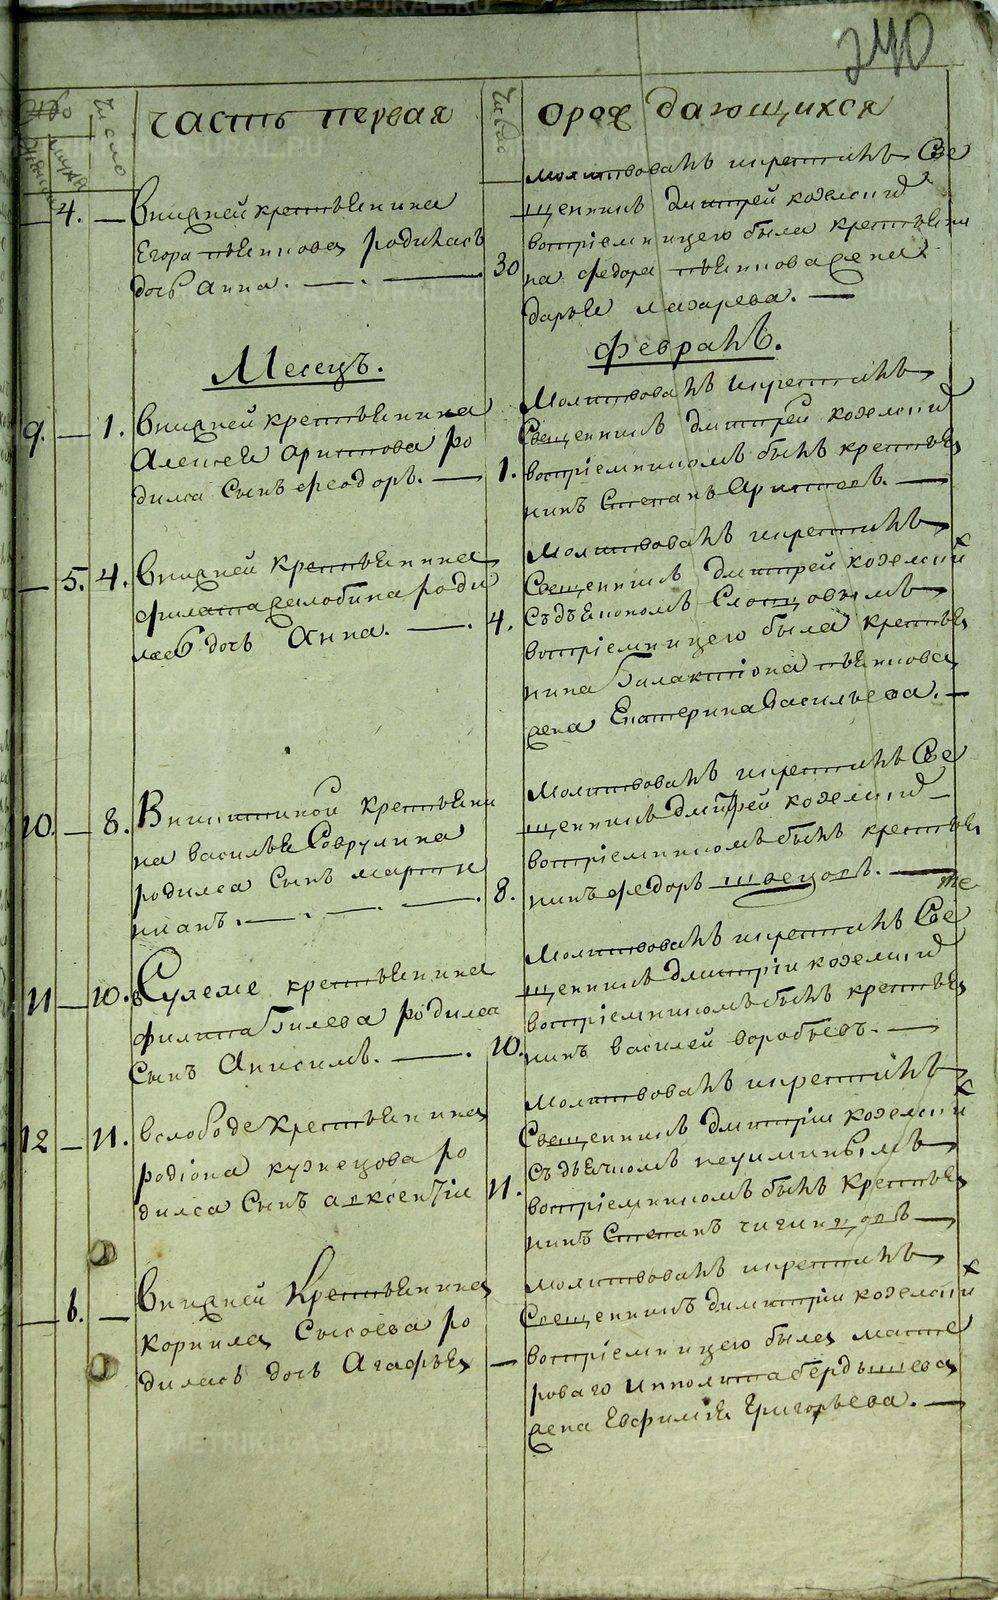 240
Число
Число
Часть первая
о рождающихся
4. — Внижней крестьянина
Егора пьянкова родилась
дочь Анна.
молитвовалъ икрестилъ Све
щенникъ дмитрей козелской
воспріемницею была крестьяни
30 на федора пьянкова жена
дарья лазарева.
Месецъ.
Февраль.
9. — 1. Внижней крестьянина
Алексея аристова ро
дился Сынъ феодоръ.
Молитвовалъ икрестилъ
Священникъ дмитрей козелской
1. воспріемникомъ былъ крестья
нинъ Степанъ Аристовъ.
— 5. 4. Внижней крестьянина
филата жалобина роди
лась дочь Анна.
Молитвовалъ икрестилъ
Священникъ дмитрей козелской
4. Съдьякономъ Словцовымъ
воспріемницею была крестья
нина Галактіона пьянкова
жена Екатерина Васильева.
10. — 8. Вникитиной крестьяни
на василья Саврулина
родился Сынъ марти
ниянъ.
молитвовалъ икрестилъ Све
щенникъ дмитрей козелской
воспріемникомъ былъ крестья
8. нинъ федоръ швецовъ.
11 — 10. в Сулеме крестьянина
филипа Гилева родился
Сынъ Анисимъ.
молитвовалъ икрестилъ Све
щенникъ дмитріи козелской
воспріемникомъ былъ крестья
10. нинъ василей воробьевъ.
12 — 11. вслободе крестьянина
родіона кузнецова ро
дился Сынъ авксентіи
молитвовалъ икрестилъ
Священникъ дмитріи козелской
съдьячкомъ неуиминымъ
11. воспріемникомъ былъ крестья
нинъ Степанъ чигинцовъ
— 6. — Внижней Крестьянина
корнила Сысоева ро
дилась дочь Агафья
молитвовалъ икрестилъ
Священникъ димитріи козелской
воспріемницею была масте
роваго ипполита бердышева
жена Евфимия Григорьева.